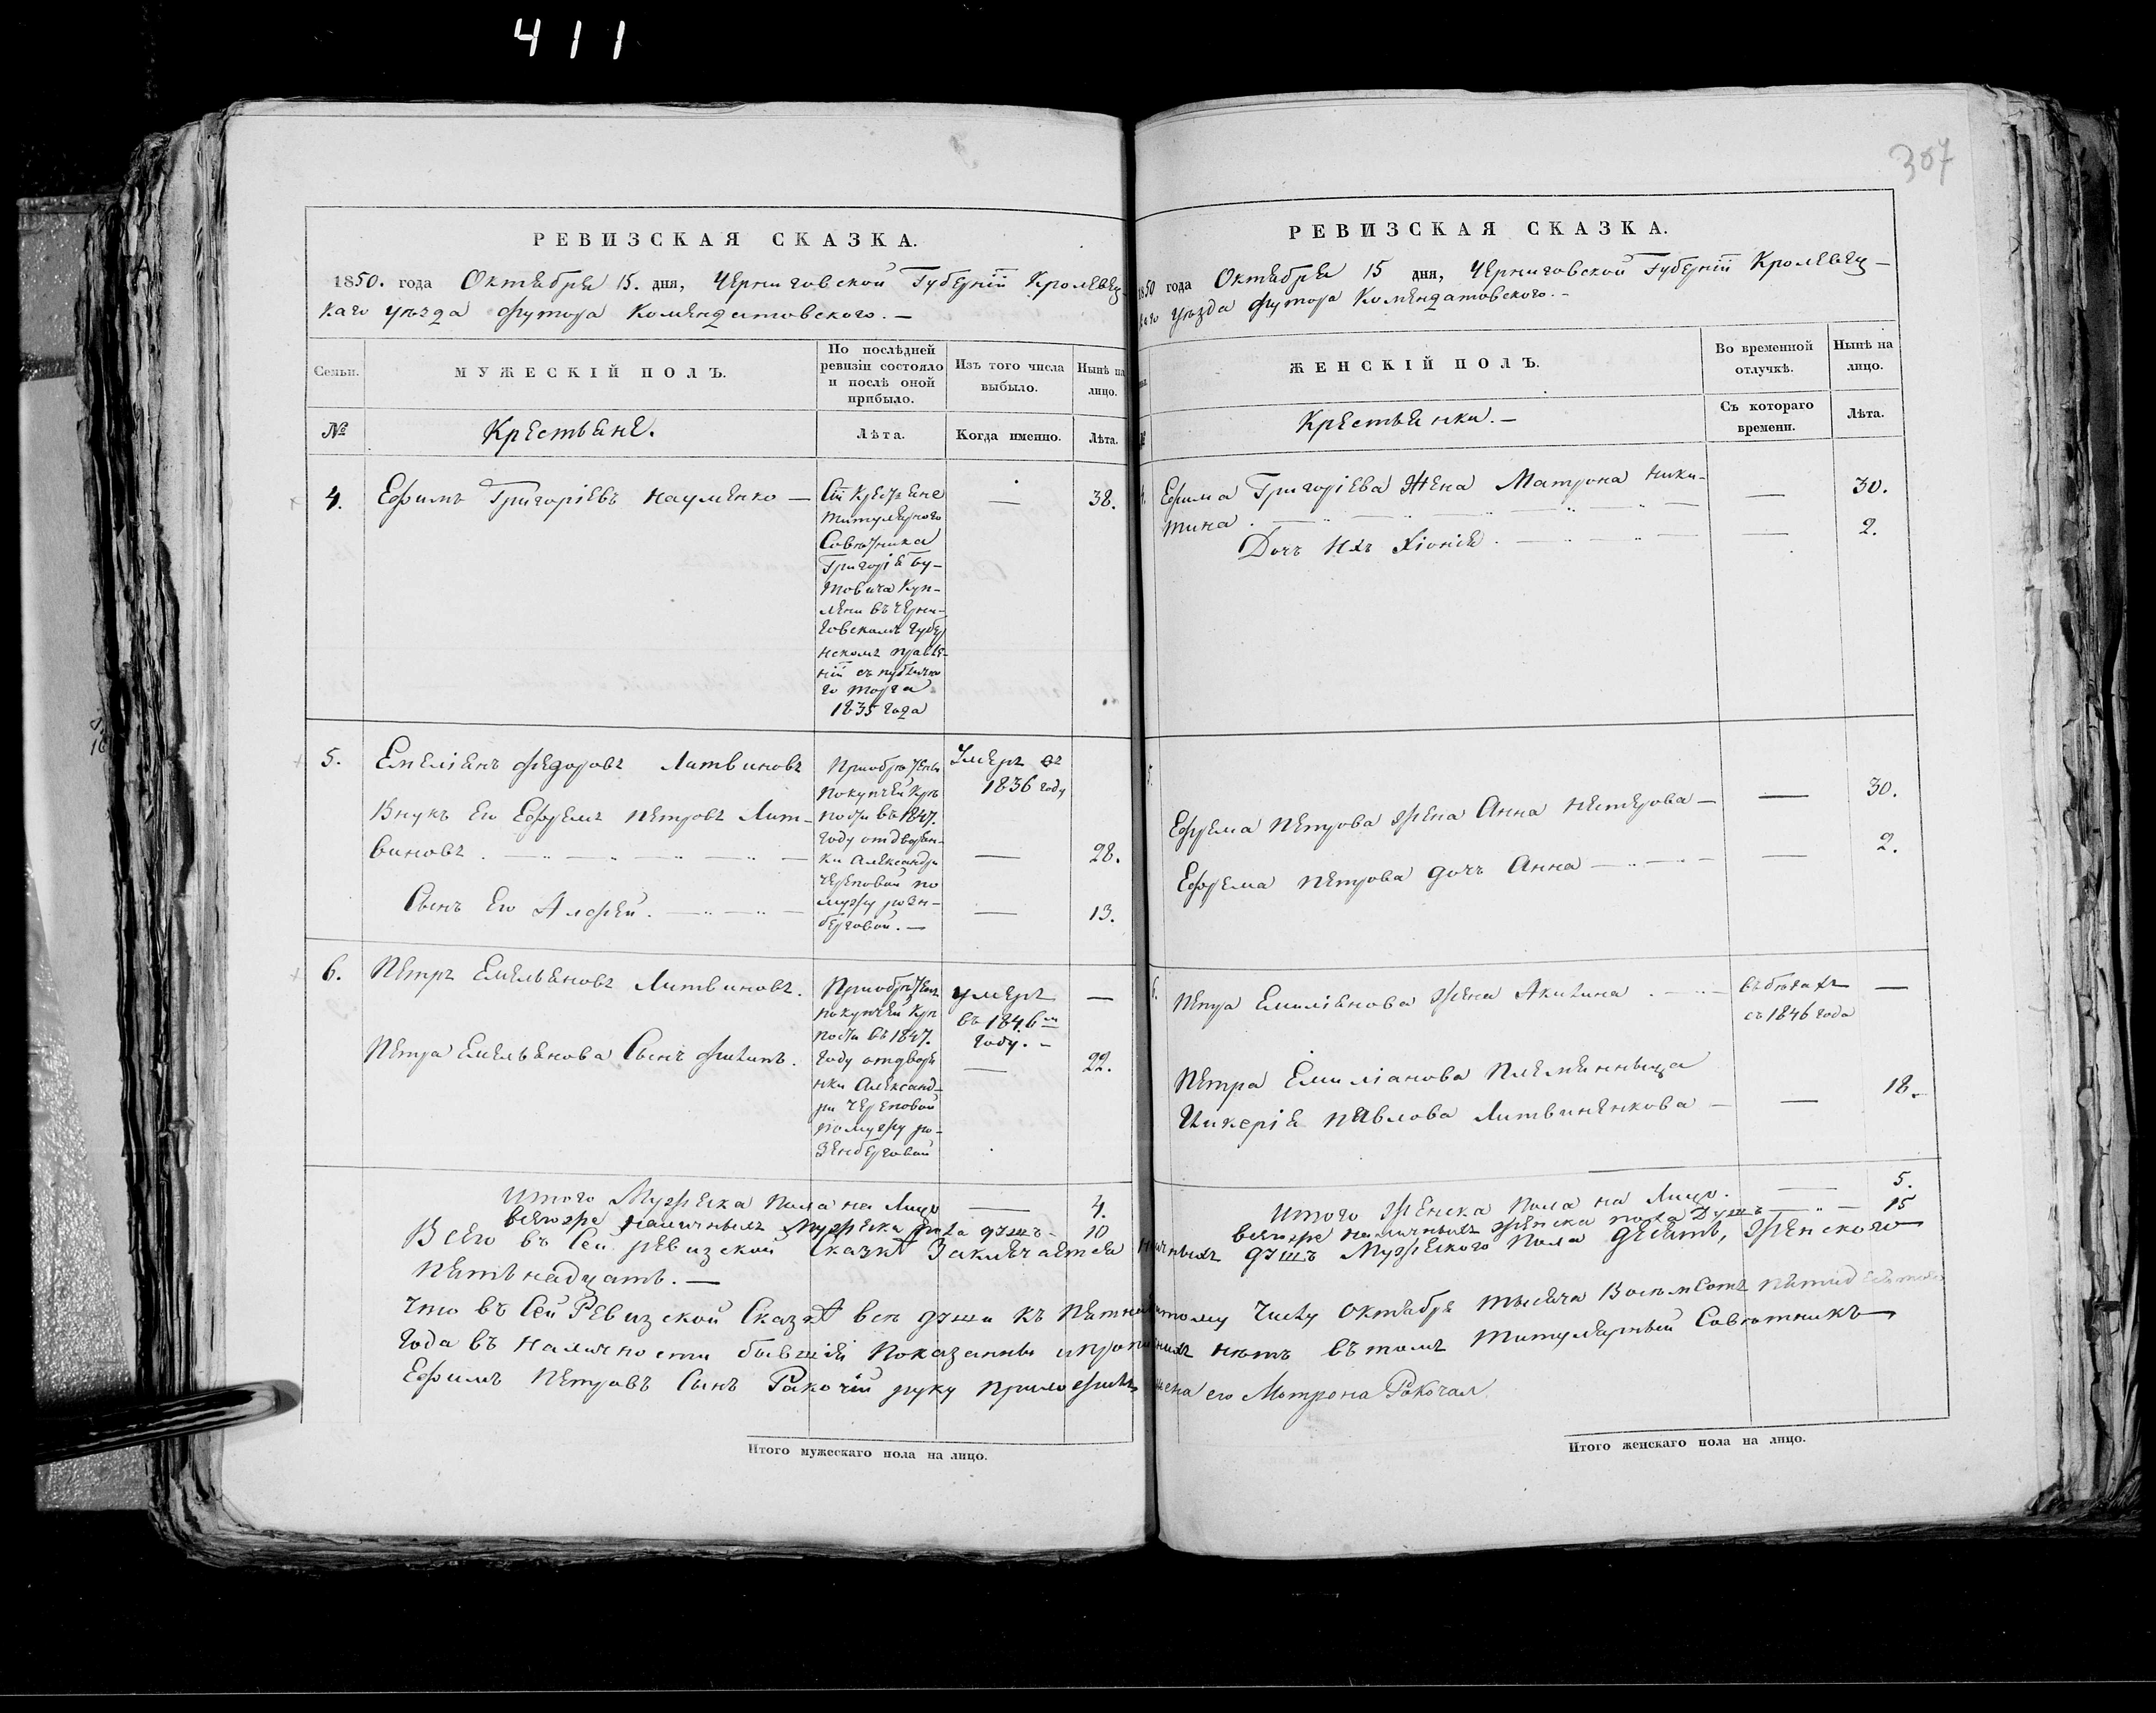 411
РЕВИЗСКАЯ СКАЗКА.
1850. года Октября 15. дня, Черниговской Губерніи Кролевец-
каго уѣзда футора Комендатовского. —
Семьи.
МУЖЕСКІЙ ПОЛЪ.
По послѣдней ревизіи состояло и послѣ оной прибыло.
Изъ того числа выбыло.
Нынѣ на лицо.
№
Крестьяне.
Лѣта.
Когда именно.
Лѣта.
4.
Ефимъ Григоріевъ Науменко —
Сіи Крестьяне
титулярного
Совѣтника
Григорія Бу-
товича Куп-
лени въ черни-
говскомъ губер
нскомъ правле-
ніи съ публично
го торга
1835 года
—
38.
5.
Емеліянъ Федоровъ Литвиновъ
Внукъ Его Ефремъ Петровъ Лит-
виновъ . —
Сынъ Его Алфей. —
Приобрѣтены
покупчей крѣ
пости въ 1847.
году от дворян-
ки Александри
Череповой по
мужу розен-
берговой. —
Умеръ въ
1836 году
—
28.
—
13.
6.
Петръ Емельяновъ Литвиновъ.
Петра Емельянова Сынъ Филипъ.
Приобрѣтены
покупчей крѣ
пости въ 1847.
году от дворя
нки Александ-
ри Череповой
по мужу ро-
зенберговой
умеръ
въ 1846 м
году. —
—
—
22.
Итого Мужеска пола на Лицо — 4.
всего же наличныхъ Мужеска пола душъ — 10
Итого мужескаго пола на лицо.
307
РЕВИЗСКАЯ СКАЗКА.
1850 года Октября 15 дня, Черниговской Губерніи Кролевец—
каго уѣзда футора Комендатовского. —
ЖЕНСКІЙ ПОЛЪ.
Во временной отлучкѣ.
Нынѣ на лицо.
№
Крестьянки. —
Съ котораго времени.
Лѣта.
4.
Ефима Григоріева Жена Матрона Ники-
тина . — — 30.
Дочь Ихъ Хіонія . — — 2.
5.
Ефрема Петрова Жена Анна Нестерова — — 30.
Ефрема Петрова дочь Анна — — 2.
6.
Петра Емиліянова Жена Акилина . —
въ бѣгахъ
съ 1846 года
—
Петра Емиліанова Племянныца
Гликерія Павлова Литвиненкова — — 18.
Итого Женска Пола на Лицо. — 5.
всего же наличныхъ женска пола Душъ — 15
Всего въ Сей ревизской Сказкѣ Заключается наличныхъ душъ Мужеского Пола десять, Женского
пятьнадцать. —
Что въ Сей Ревизской Сказкѣ всѣ души къ пятнадцатому Числу Октября тысяча Восемсотъ пятидесятого
года въ наличности бывшія показанны и прописныхъ нѣтъ въ томъ Титулярный Совѣтникъ
Ефимъ Петровъ Сынъ Ракочій руку приложилъ жена его Мотрона Ракочая
Итого женскаго пола на лицо.